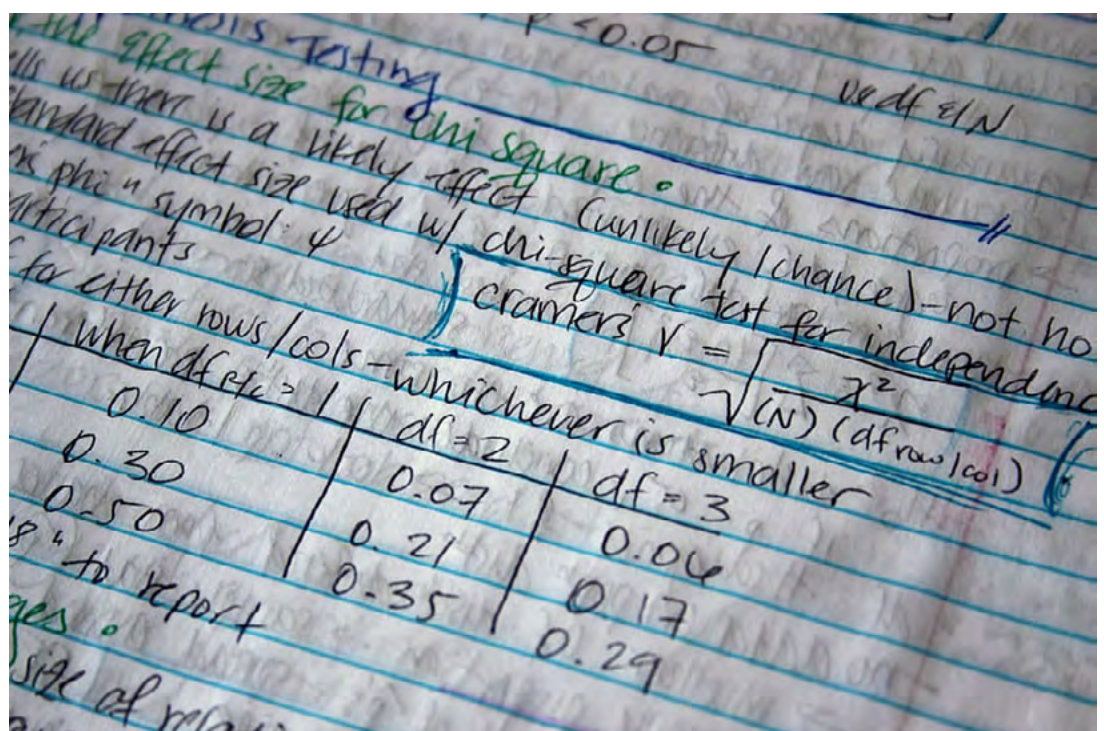 Testing
p <0.05
use df &/N
the effect size for chi square.
us there is a likely effect (unlikely 1 chance)-not ho
effect size used w/ chi-square test for independenc
phi" symbol: φ
cramers' V = √ x² (N) (df row/col)
for either rows/cols-whichever is smaller
when df r/c = 1 df=2 df=3
0.10 0.07 0.06
0.30 0.21 0.17
0.50 0.35 0.29
" to report
size of